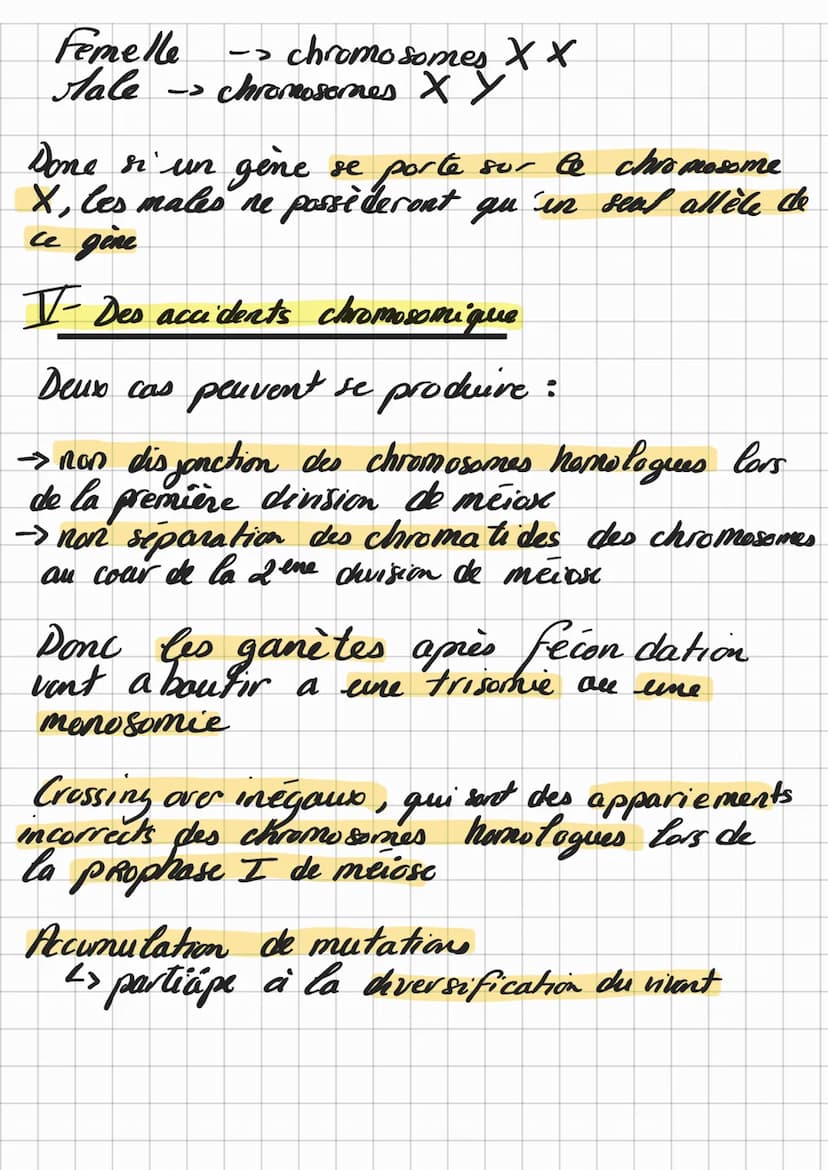 Femelle -> chromosomes X X
Male -> chromosomes X Y
Donc si un gène se porte sur le chromosome
X, les males ne possèderont qu'un seul allèle de
ce gène
V- Des accidents chromosomique
Deux cas peuvent se produire :
-> non disjonction des chromosomes homologues lors
de la première division de méiose
-> non séparation des chromatides des chromosomes
au cour de la 2ème division de meiose
Donc les ganètes après fécondation
vont aboutir a une trisomie ou une
monosomie
Crossing over inégaux, qui sont des appariements
incorrects des chromosomes homologues lors de
la prophase I de méiose
Accumulation de mutations
↳ participe à la diversification du vivant